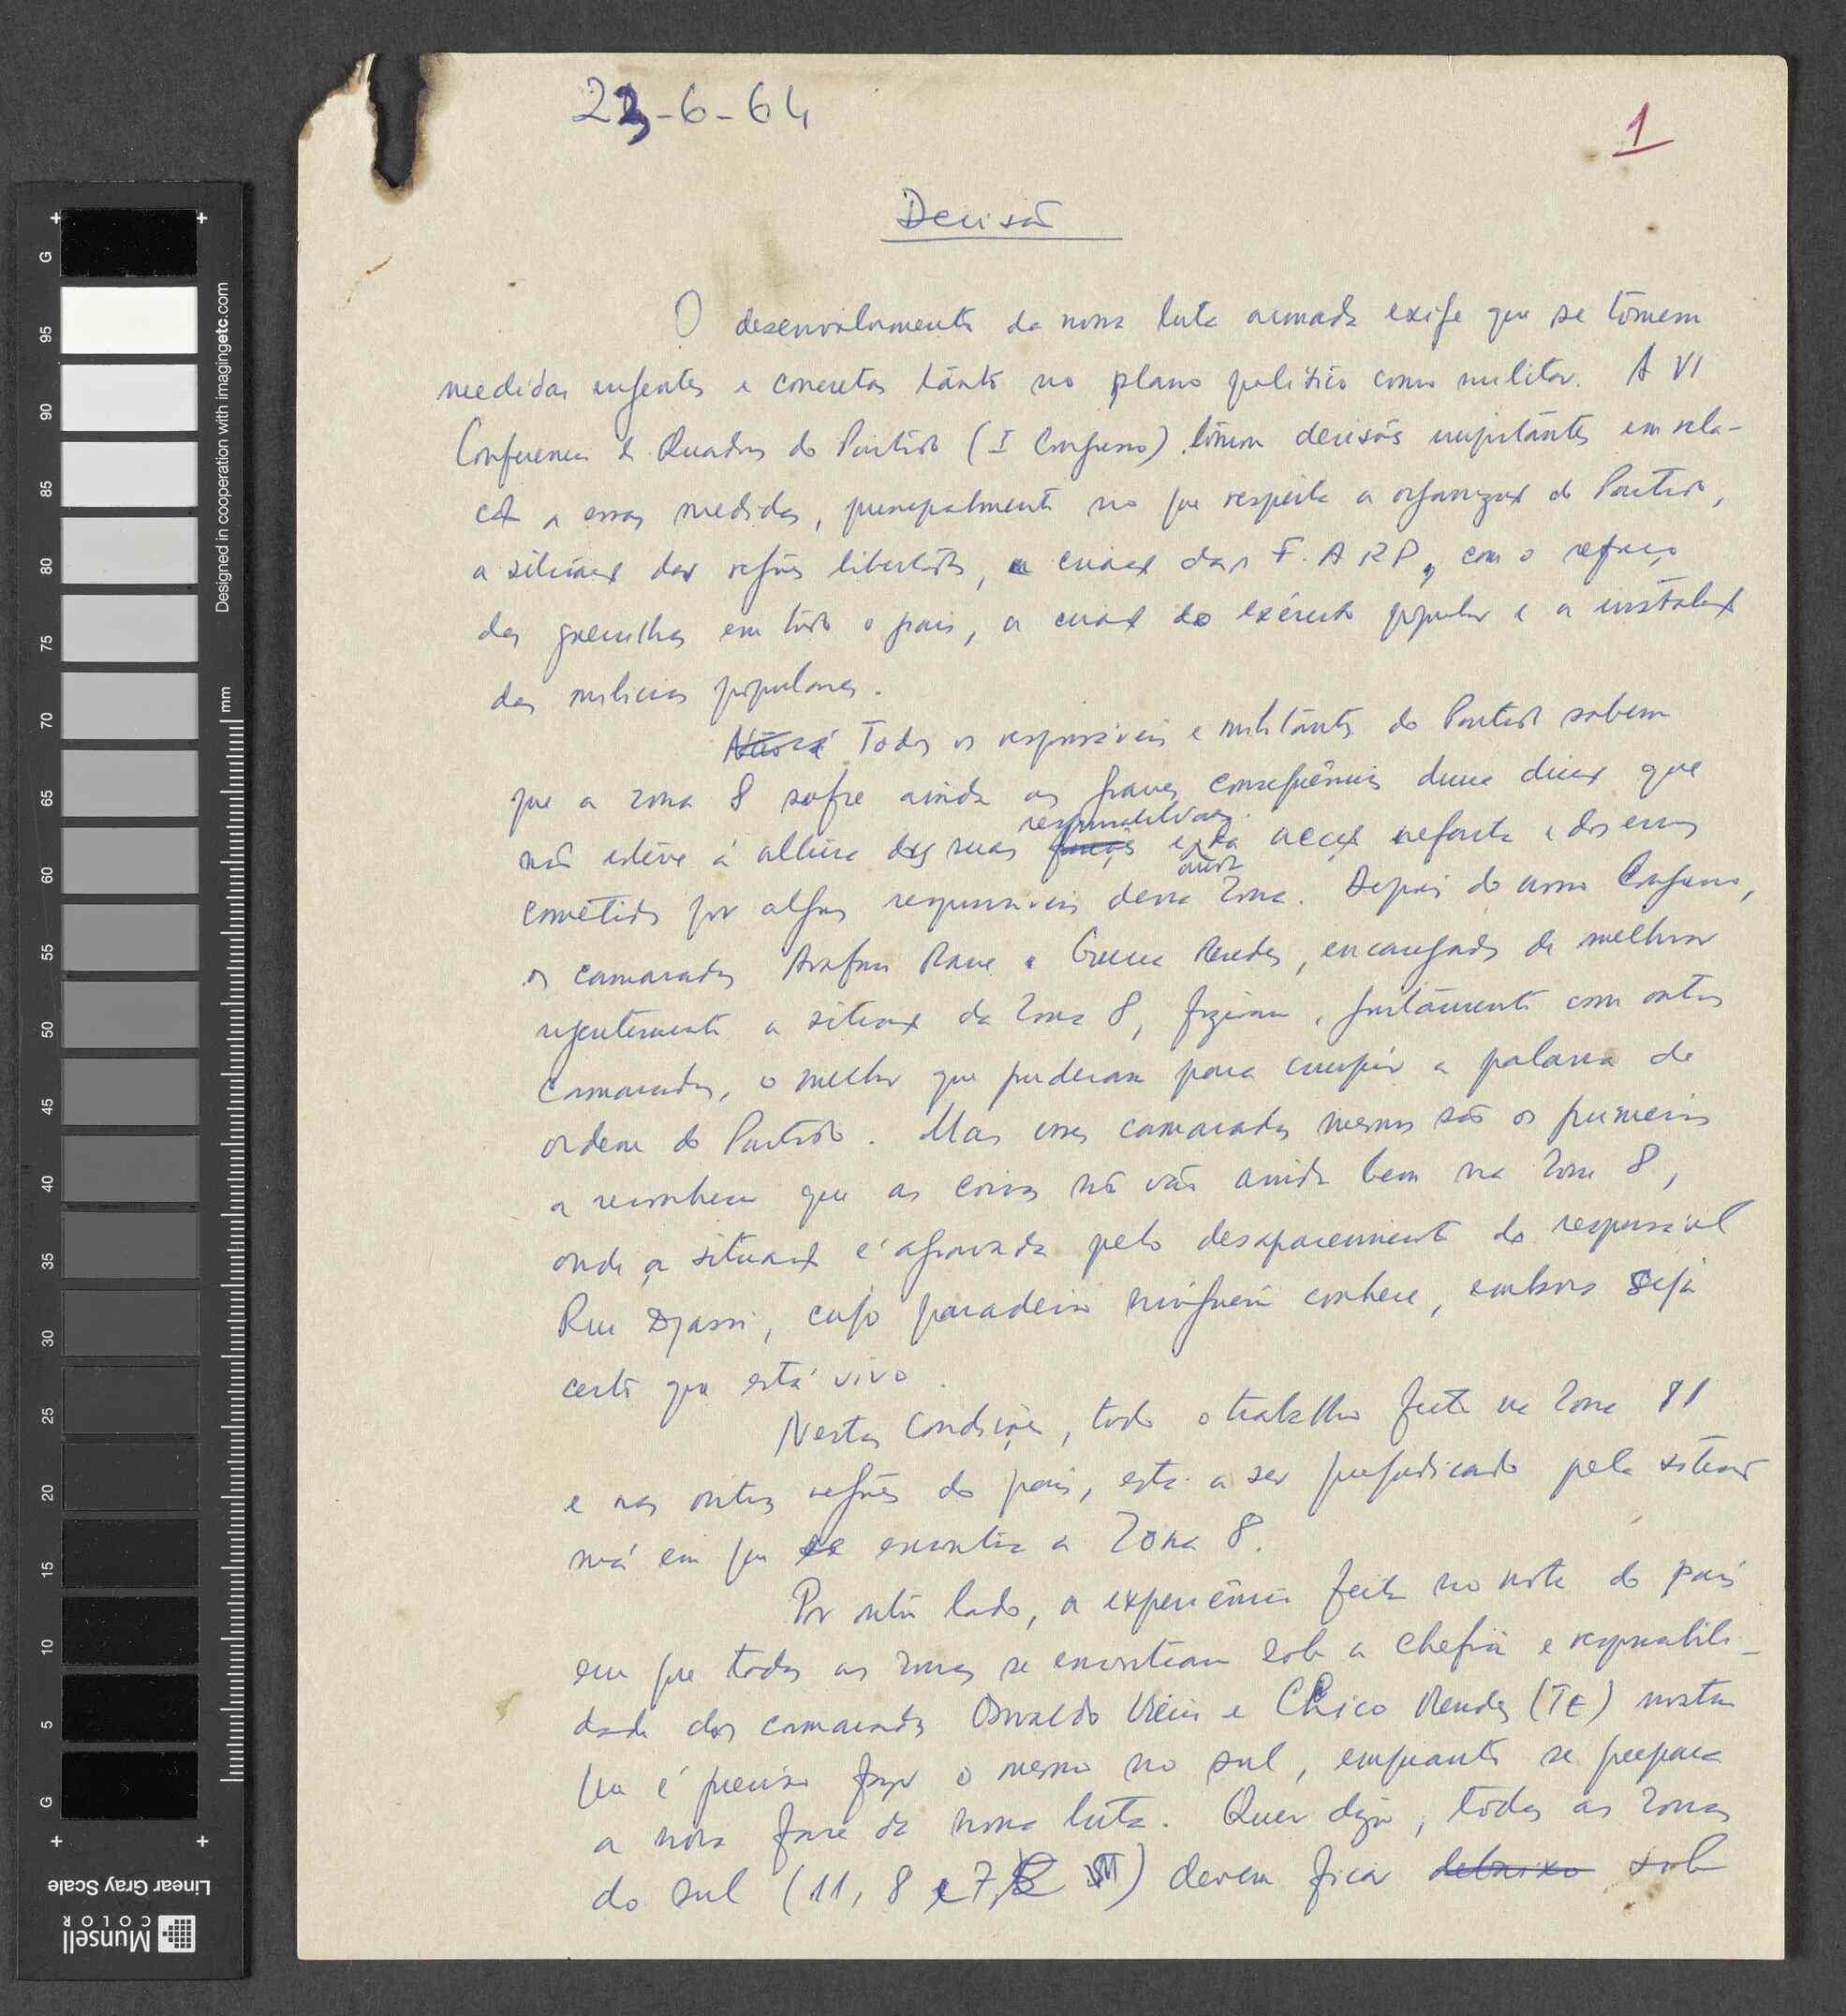 23-6-64
1
Decisão
O desenvolvimento da nossa luta armada exige que se tomem
medidas urgentes e concretas tanto no plano político como militar. A VI
Conferencia de Quadros do Partido (I Congresso) tomou decisões importantes em rela-
ção a essas medidas, principalmente no que respeita a organização do Partido,
a situação das regiões libertadas, a criação das F.ARP, com o reforço
das guerrilhas em todo o país, a criação do exército popular e a instalação
das milícias populares.
Todos os responsáveis e militantes do Partido sabem
que a zona 8 sofre ainda as graves consequências duma direcção que
não esteve à altura das suas responsabilidades e da acção nefasta e dos erros
cometidos por alguns responsáveis dessa zona. Depois do nosso Congresso,
os camaradas Arafam Mane e Guerra Mendes, encarregados de melhorar
urgentemente a situação da zona 8, fizeram, juntamente com outros
camaradas, o melhor que puderam para cumprir a palavra de
ordem do Partido. Mas esses camaradas mesmos são os primeiros
a reconhecer que as coisas não vão ainda bem na zona 8,
onde a situação é agravada pelo desaparecimento do responsável
Rui Djassi, cujo paradeiro ninguém conhece, embora seja
certo que está vivo.
Nestas condições, todo o trabalho feito na zona 11
e nas outras regiões do país, está a ser prejudicado pela situação
má em que se encontra a Zona 8.
Por outro lado, a experiência feita no norte do país
em que todas as zonas se encontram sob a chefia e responsabili-
dade dos camaradas Osvaldo Vieira e Chico Mendes (TE) mostra
que é preciso fazer o mesmo no sul, enquanto se prepara
a nova fase da nossa luta. Quer dizer, todas as zonas
do sul (11, 8 e 7) devem ficar debaixo sob
Designed in cooperation with imagingetc.com
mm
G
95
90
85
80
75
70
65
60
55
50
45
40
35
30
25
20
15
10
5
G
Linear Gray Scale
Munsell
COLOR